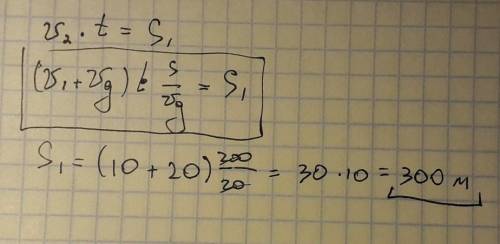 v₂ · t = S₁
(v₁ + vg) t S/vg = S₁
S₁ = (10 + 20) 200/20 = 30 · 10 = 300 м